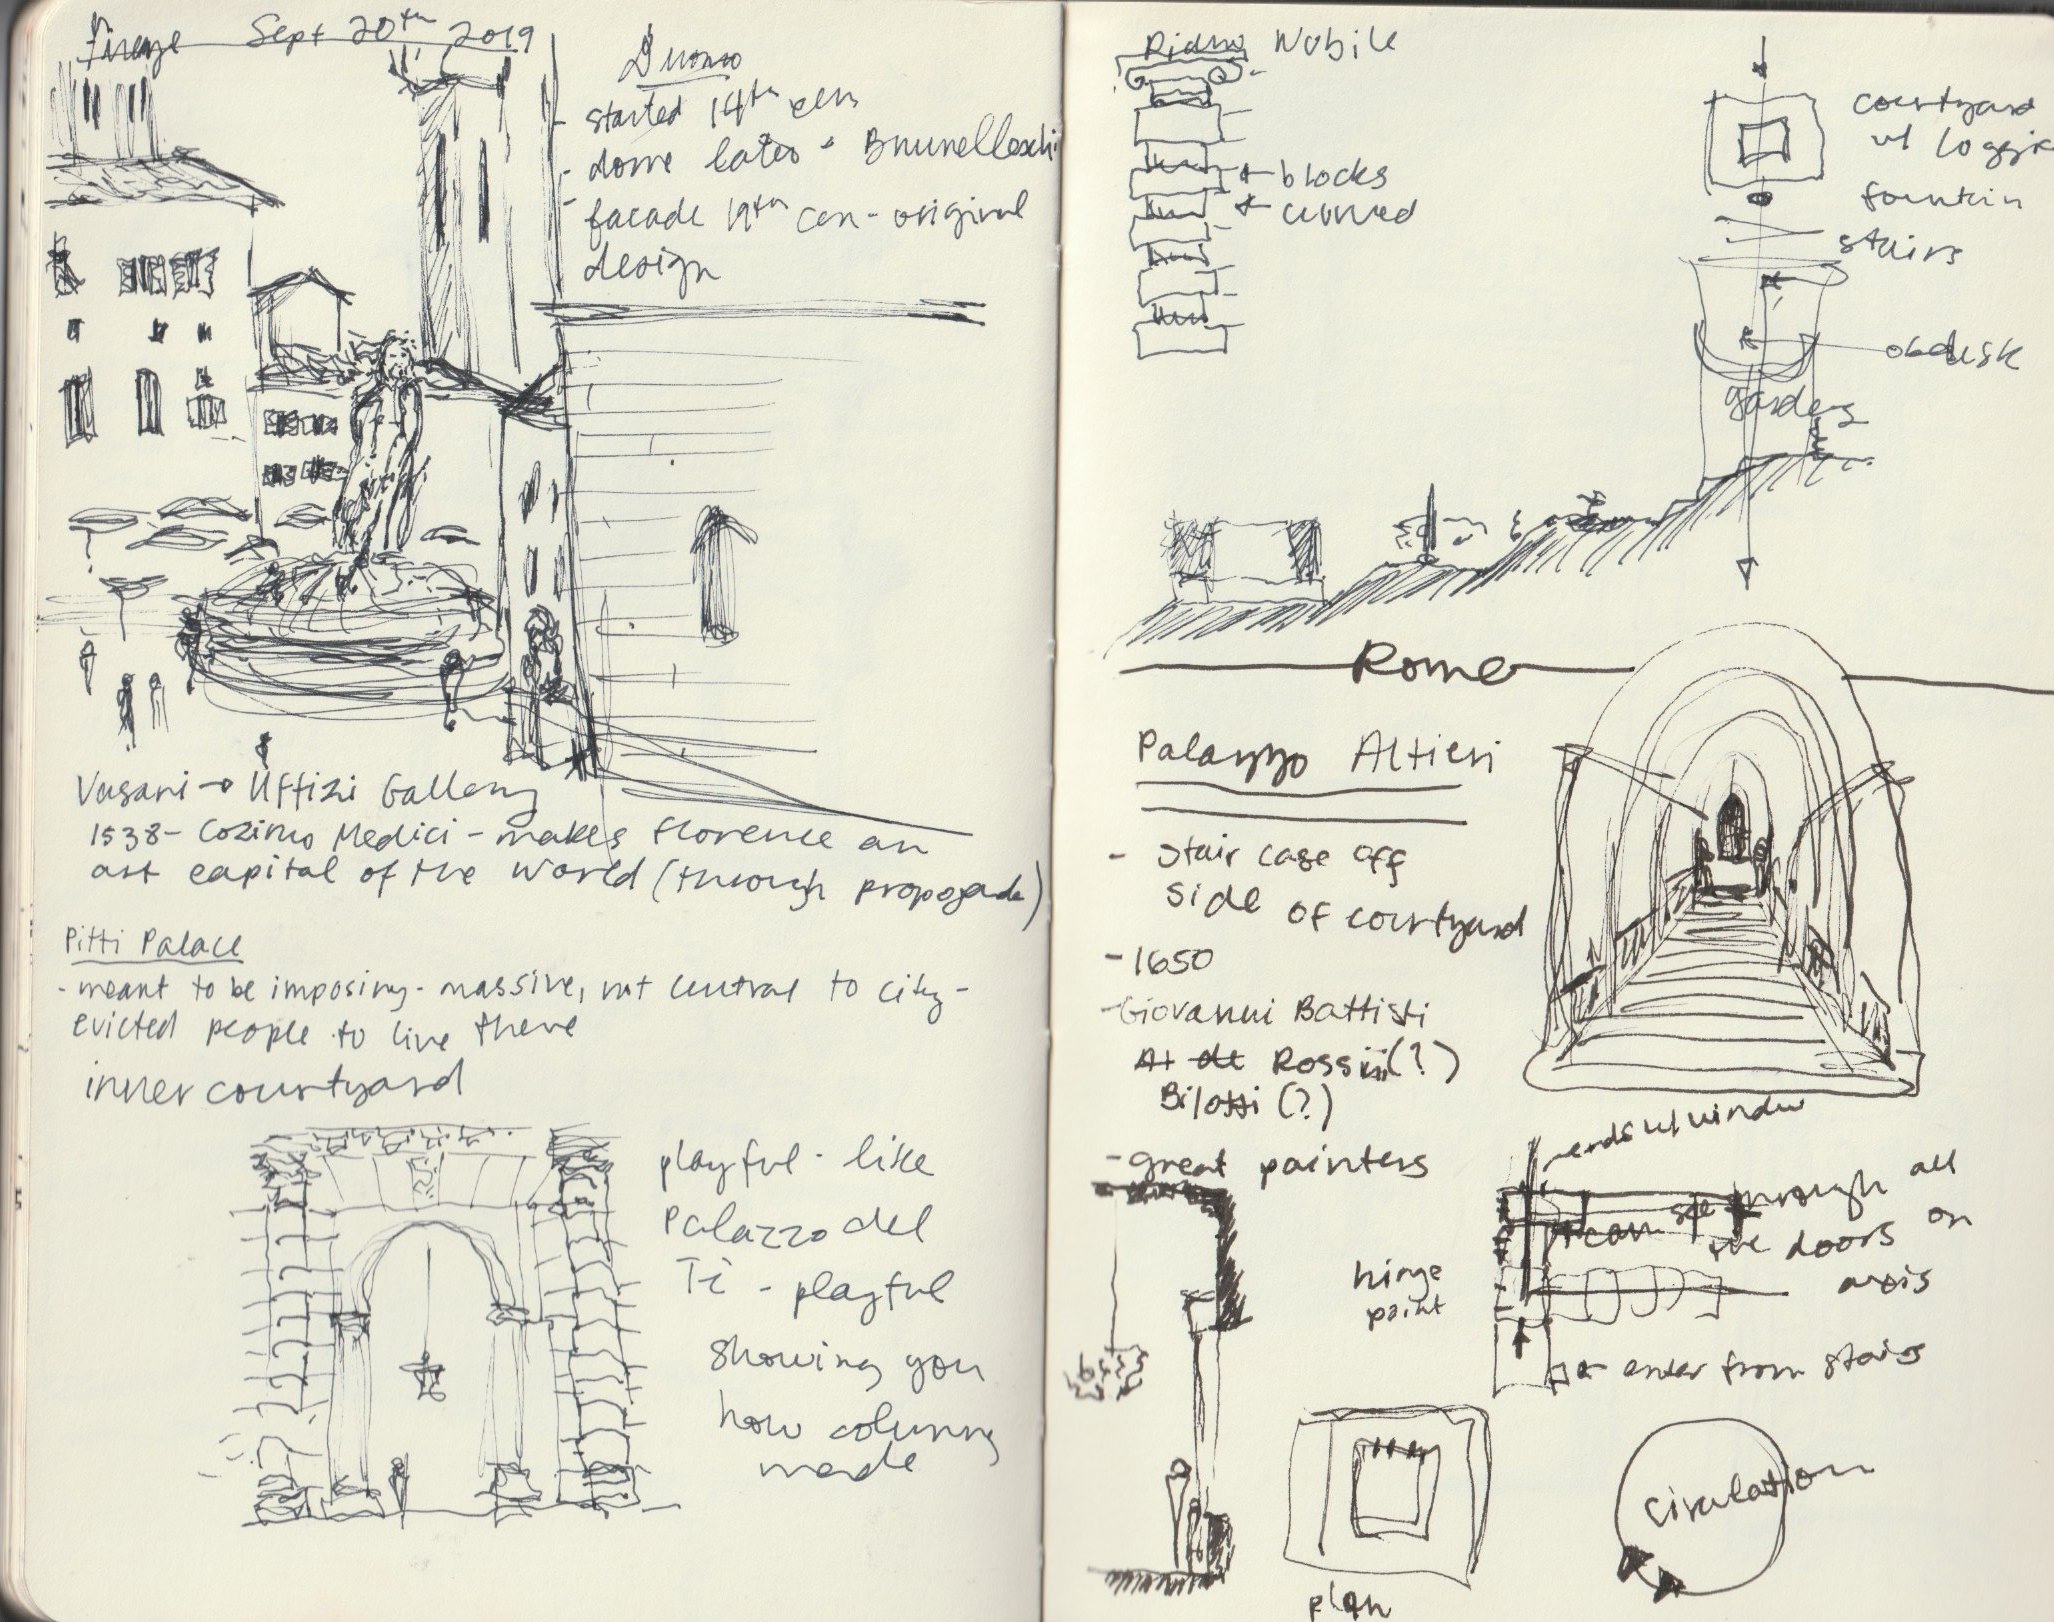 Firenze Sept 20th 2019
Duomo
- started 14th cen
- dome later - Brunelleschi
- facade 19th cen - original
design
Vasari → Uffizi Gallery
1538 - Cosimo Medici - makes Florence an
art capital of the world (through propoganda)
Pitti Palace
- meant to be imposing - massive, not central to city -
evicted people to live there
inner courtyard
playful - like
Palazzo del
Te - playful
showing you
how columns
made
Piano Nobile
← blocks
← curved
courtyard
w/ loggia
fountain
stairs
obelisk
gardens
Rome
Palazzo Altieri
- stair case off
side of courtyard
- 1650
- Giovanni Battisti
At de Rossi (?)
Bilotti (?)
- great painters
ends w/ window
* can see through all
the doors on
axis
hinge
point
← enter from stairs
plan
circulation